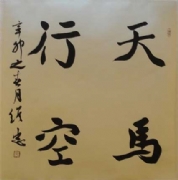 天馬
行空
辛卯之春月